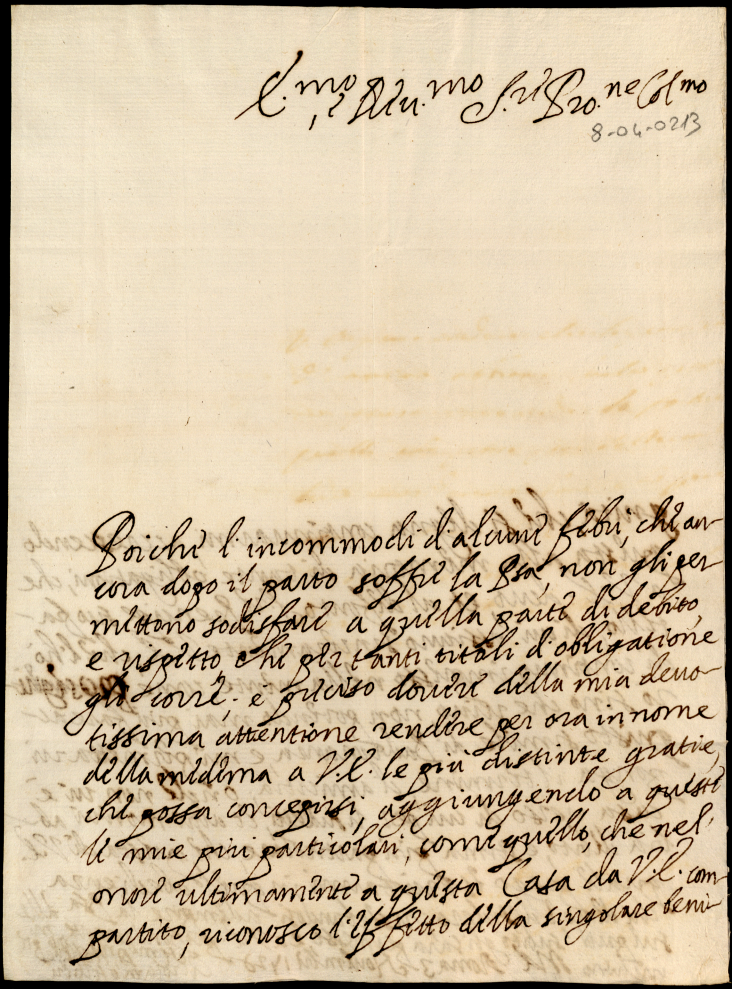 E.mo, e Reu.mo S.re Pro.ne Col.mo
8-04-0213
Poiche l'incommodi d'alcune febri, che an-
cora dopo il parto soffre la Pssa, non gli per-
mettono sodisfare a quella parte di debito,
e rispetto, che per tanti titoli d'obligatione
gli corre; è preciso dovere della mia devo-
tissima attentione rendere per ora in nome
della medema a V.E. le più distinte gratie,
che possa concepirsi, aggiungendo a queste
le mie più particolari, come quello, che nel,
onore ultimamente a questa Casa da V.E. com-
partito, riconosco l'effetto della singolare beni-